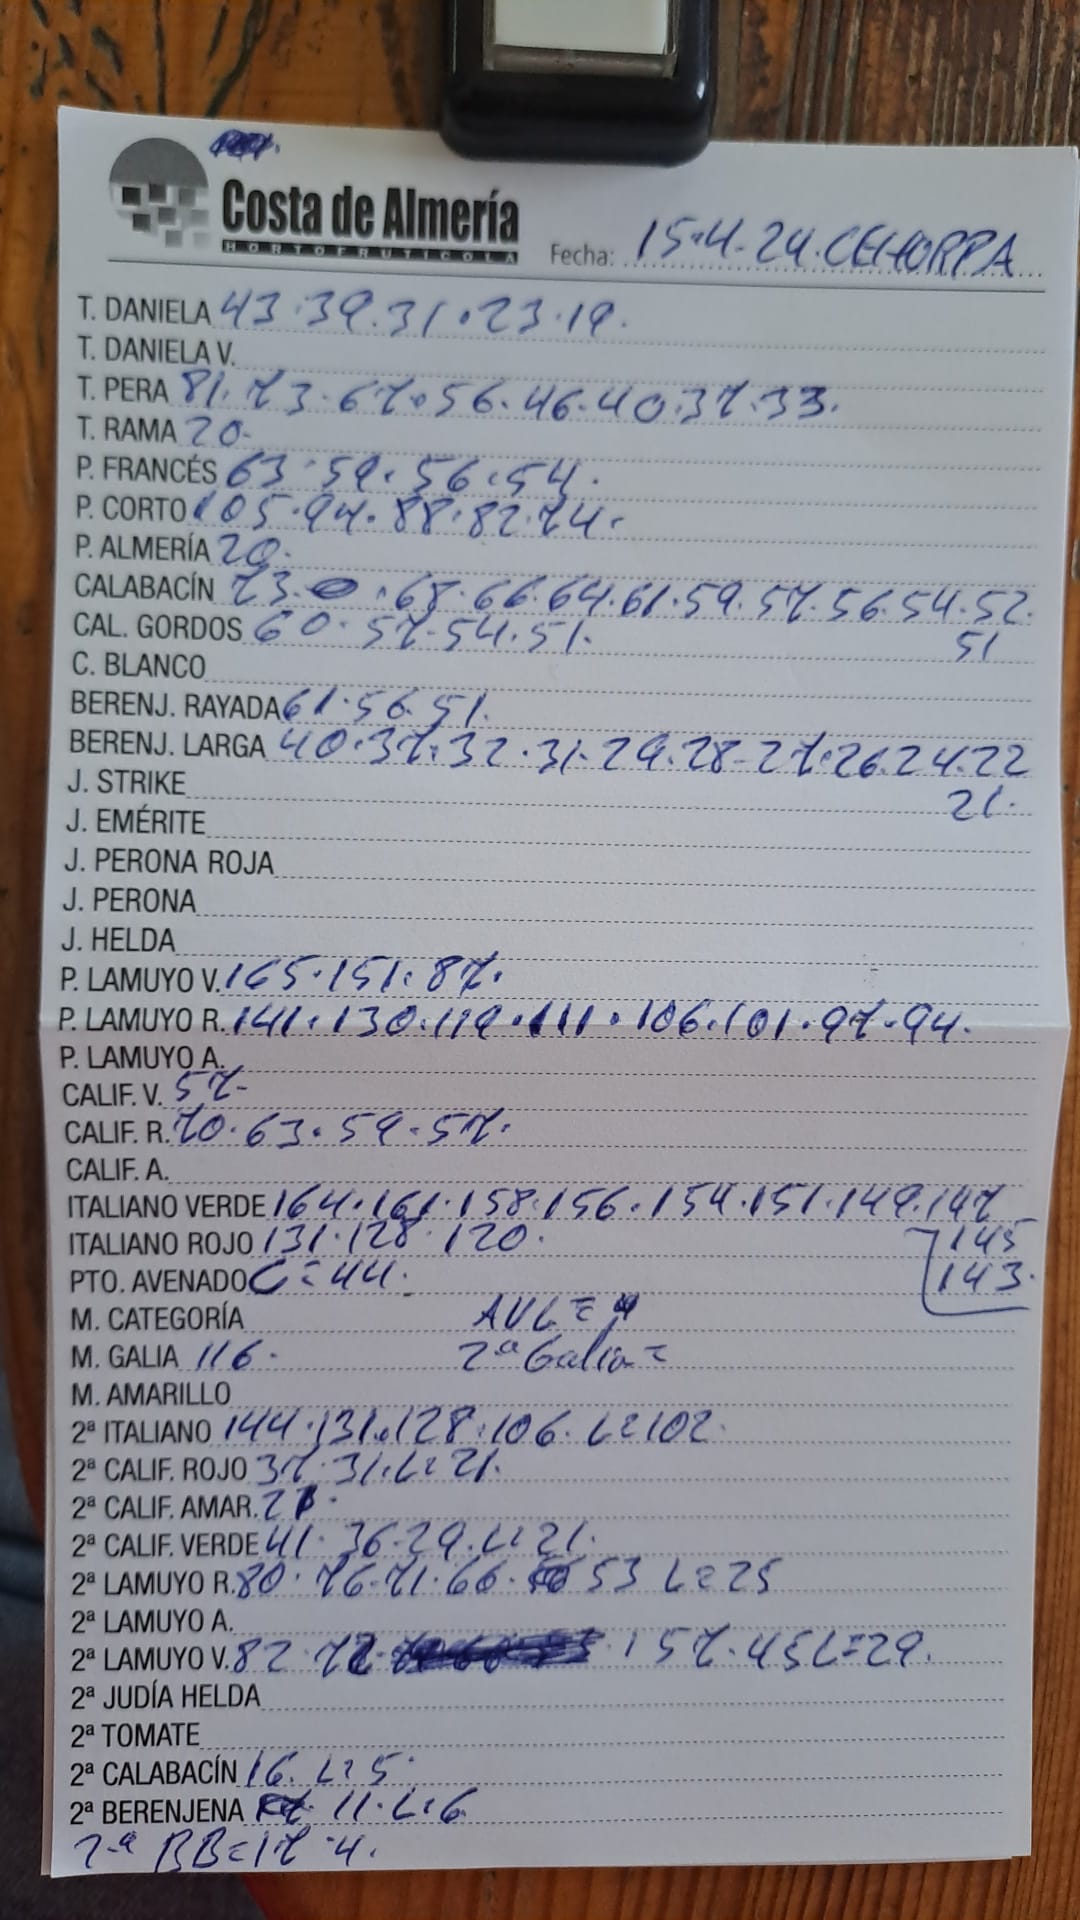 Costa de Almería
HORTOFRUTICOLA
Fecha: 15-4-24. CEHORPA
T. DANIELA 43.39.31.23.19.
T. DANIELA V.
T. PERA 81.73.67.56.46.40.37.33.
T. RAMA 20.
P. FRANCÉS 63.59.56.54.
P. CORTO 105.94.88.82.74.
P. ALMERÍA 20.
CALABACÍN 73. .67.66.64.61.59.57.56.54.52.
51
CAL. GORDOS 60.57.54.51.
C. BLANCO
BERENJ. RAYADA 61.56.51.
BERENJ. LARGA 40.37.32.31.29.28.27.26.24.22
21.
J. STRIKE
J. EMÉRITE
J. PERONA ROJA
J. PERONA
J. HELDA
P. LAMUYO V. 165.151.87.
P. LAMUYO R. 141.130.119.111.106.101.97.94.
P. LAMUYO A.
CALIF. V. 57-
CALIF. R. 70.63.59.57.
CALIF. A.
ITALIANO VERDE 164.161.158.156.154.151.149.147
145
143.
ITALIANO ROJO 131.128.120.
PTO. AVENADO C=44.
M. CATEGORÍA AVL=
M. GALIA 116. 2ª Galia=
M. AMARILLO
2ª ITALIANO 144.131.128.106. L=102.
2ª CALIF. ROJO 37.31.L=21.
2ª CALIF. AMAR.
2ª CALIF. VERDE 41.36.29.L=21.
2ª LAMUYO R. 80.76.71.66. 53 L=25
2ª LAMUYO A.
2ª LAMUYO V. 82.72. 57.45 L=29.
2ª JUDÍA HELDA
2ª TOMATE
2ª CALABACÍN 16. L=5.
2ª BERENJENA 11.L=6
2ª BB=17-4.